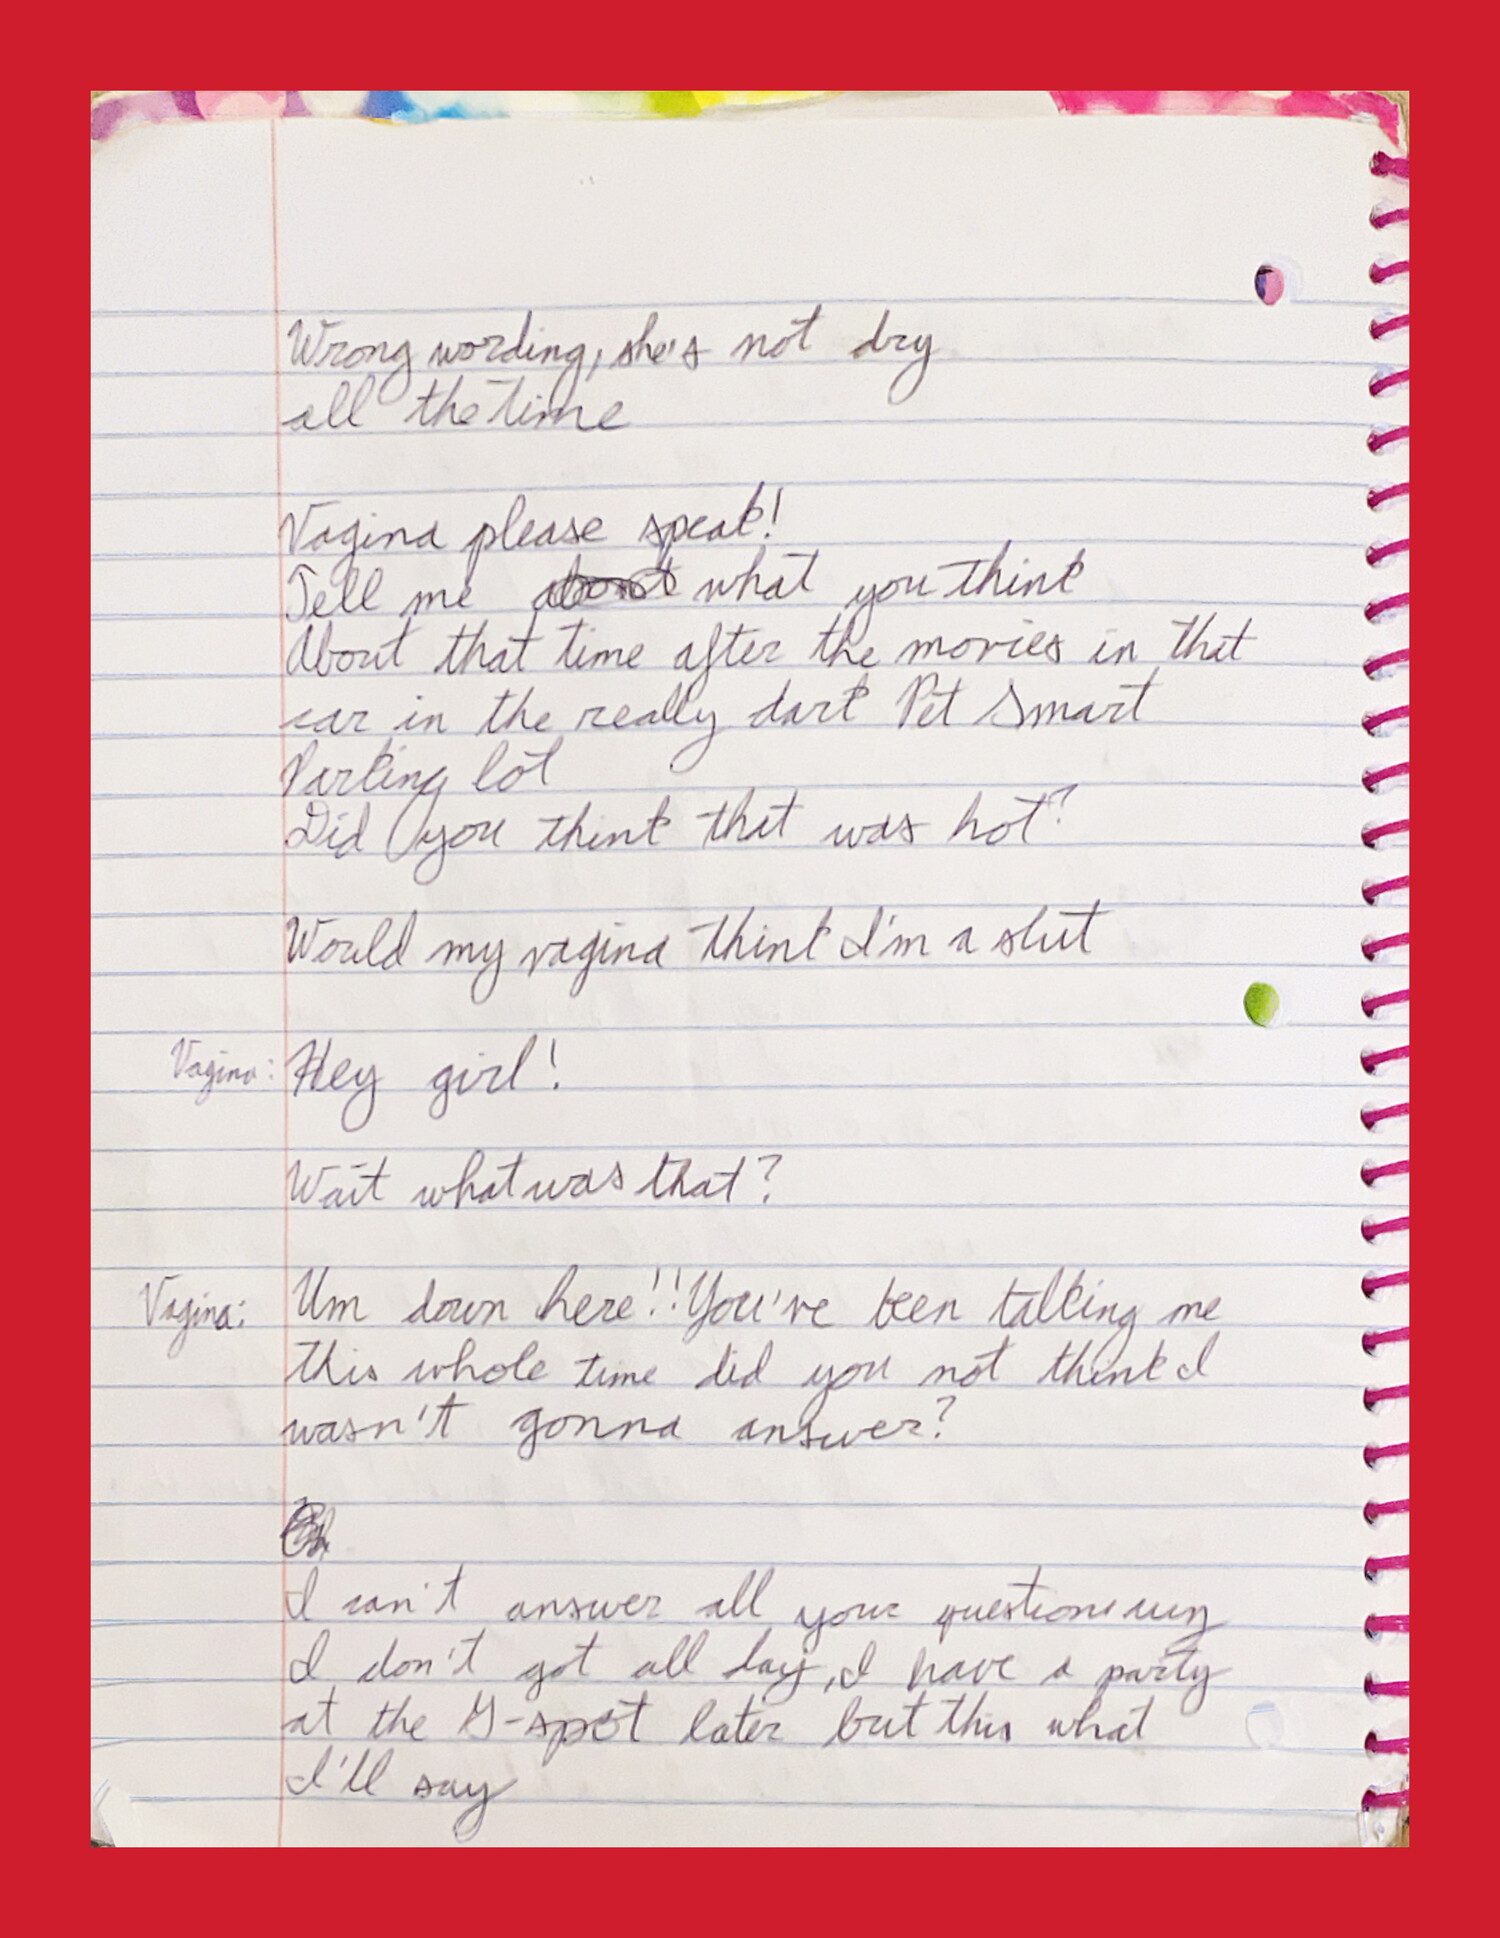 Wrong wording, she's not dry
all the time
Vagina please speak!
Tell me about what you think
About that time after the movies in that
car in the really dark Pet Smart
Parking lot
Did you think that was hot?
Would my vagina think I'm a slut
Vagina: Hey girl!
Wait what was that?
Vagina: Um down here!! You've been talking me
this whole time did you not think I
wasn't gonna answer?
I can't answer all your questions
I don't got all day, I have a party
at the G-spot later but this what
I'll say